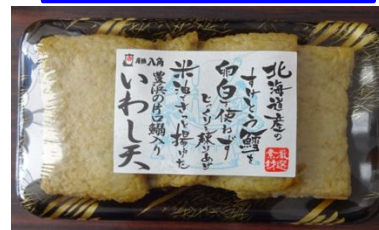 北海道産の
すけとう鱈を
卵白を使わず
じっくり練りあげ
米油でさっと揚げた
豊浜の片口鰯入り
いわし天
八角
厳選
素材